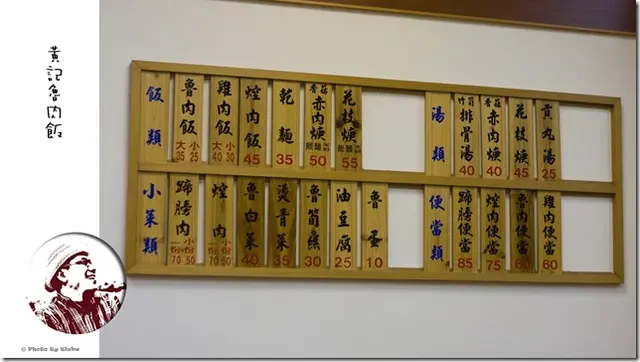 黃記魯肉飯
飯類
魯肉飯 大35 小25
雞肉飯 大40 小30
焢肉飯 45
乾麵 35
香菇赤肉焿 飯麵 50
花枝焿 飯麵 55
湯類
竹筍排骨湯 40
香菇赤肉焿 40
花枝焿 45
貢丸湯 25
小菜類
蹄膀肉 一份70 小份50
焢肉 一份70 小份50
魯白菜 40
燙青菜 35
魯筍絲 30
油豆腐 25
魯蛋 10
便當類
蹄膀便當 85
焢肉便當 75
魯肉便當 60
雞肉便當 60
© Photo By Blake